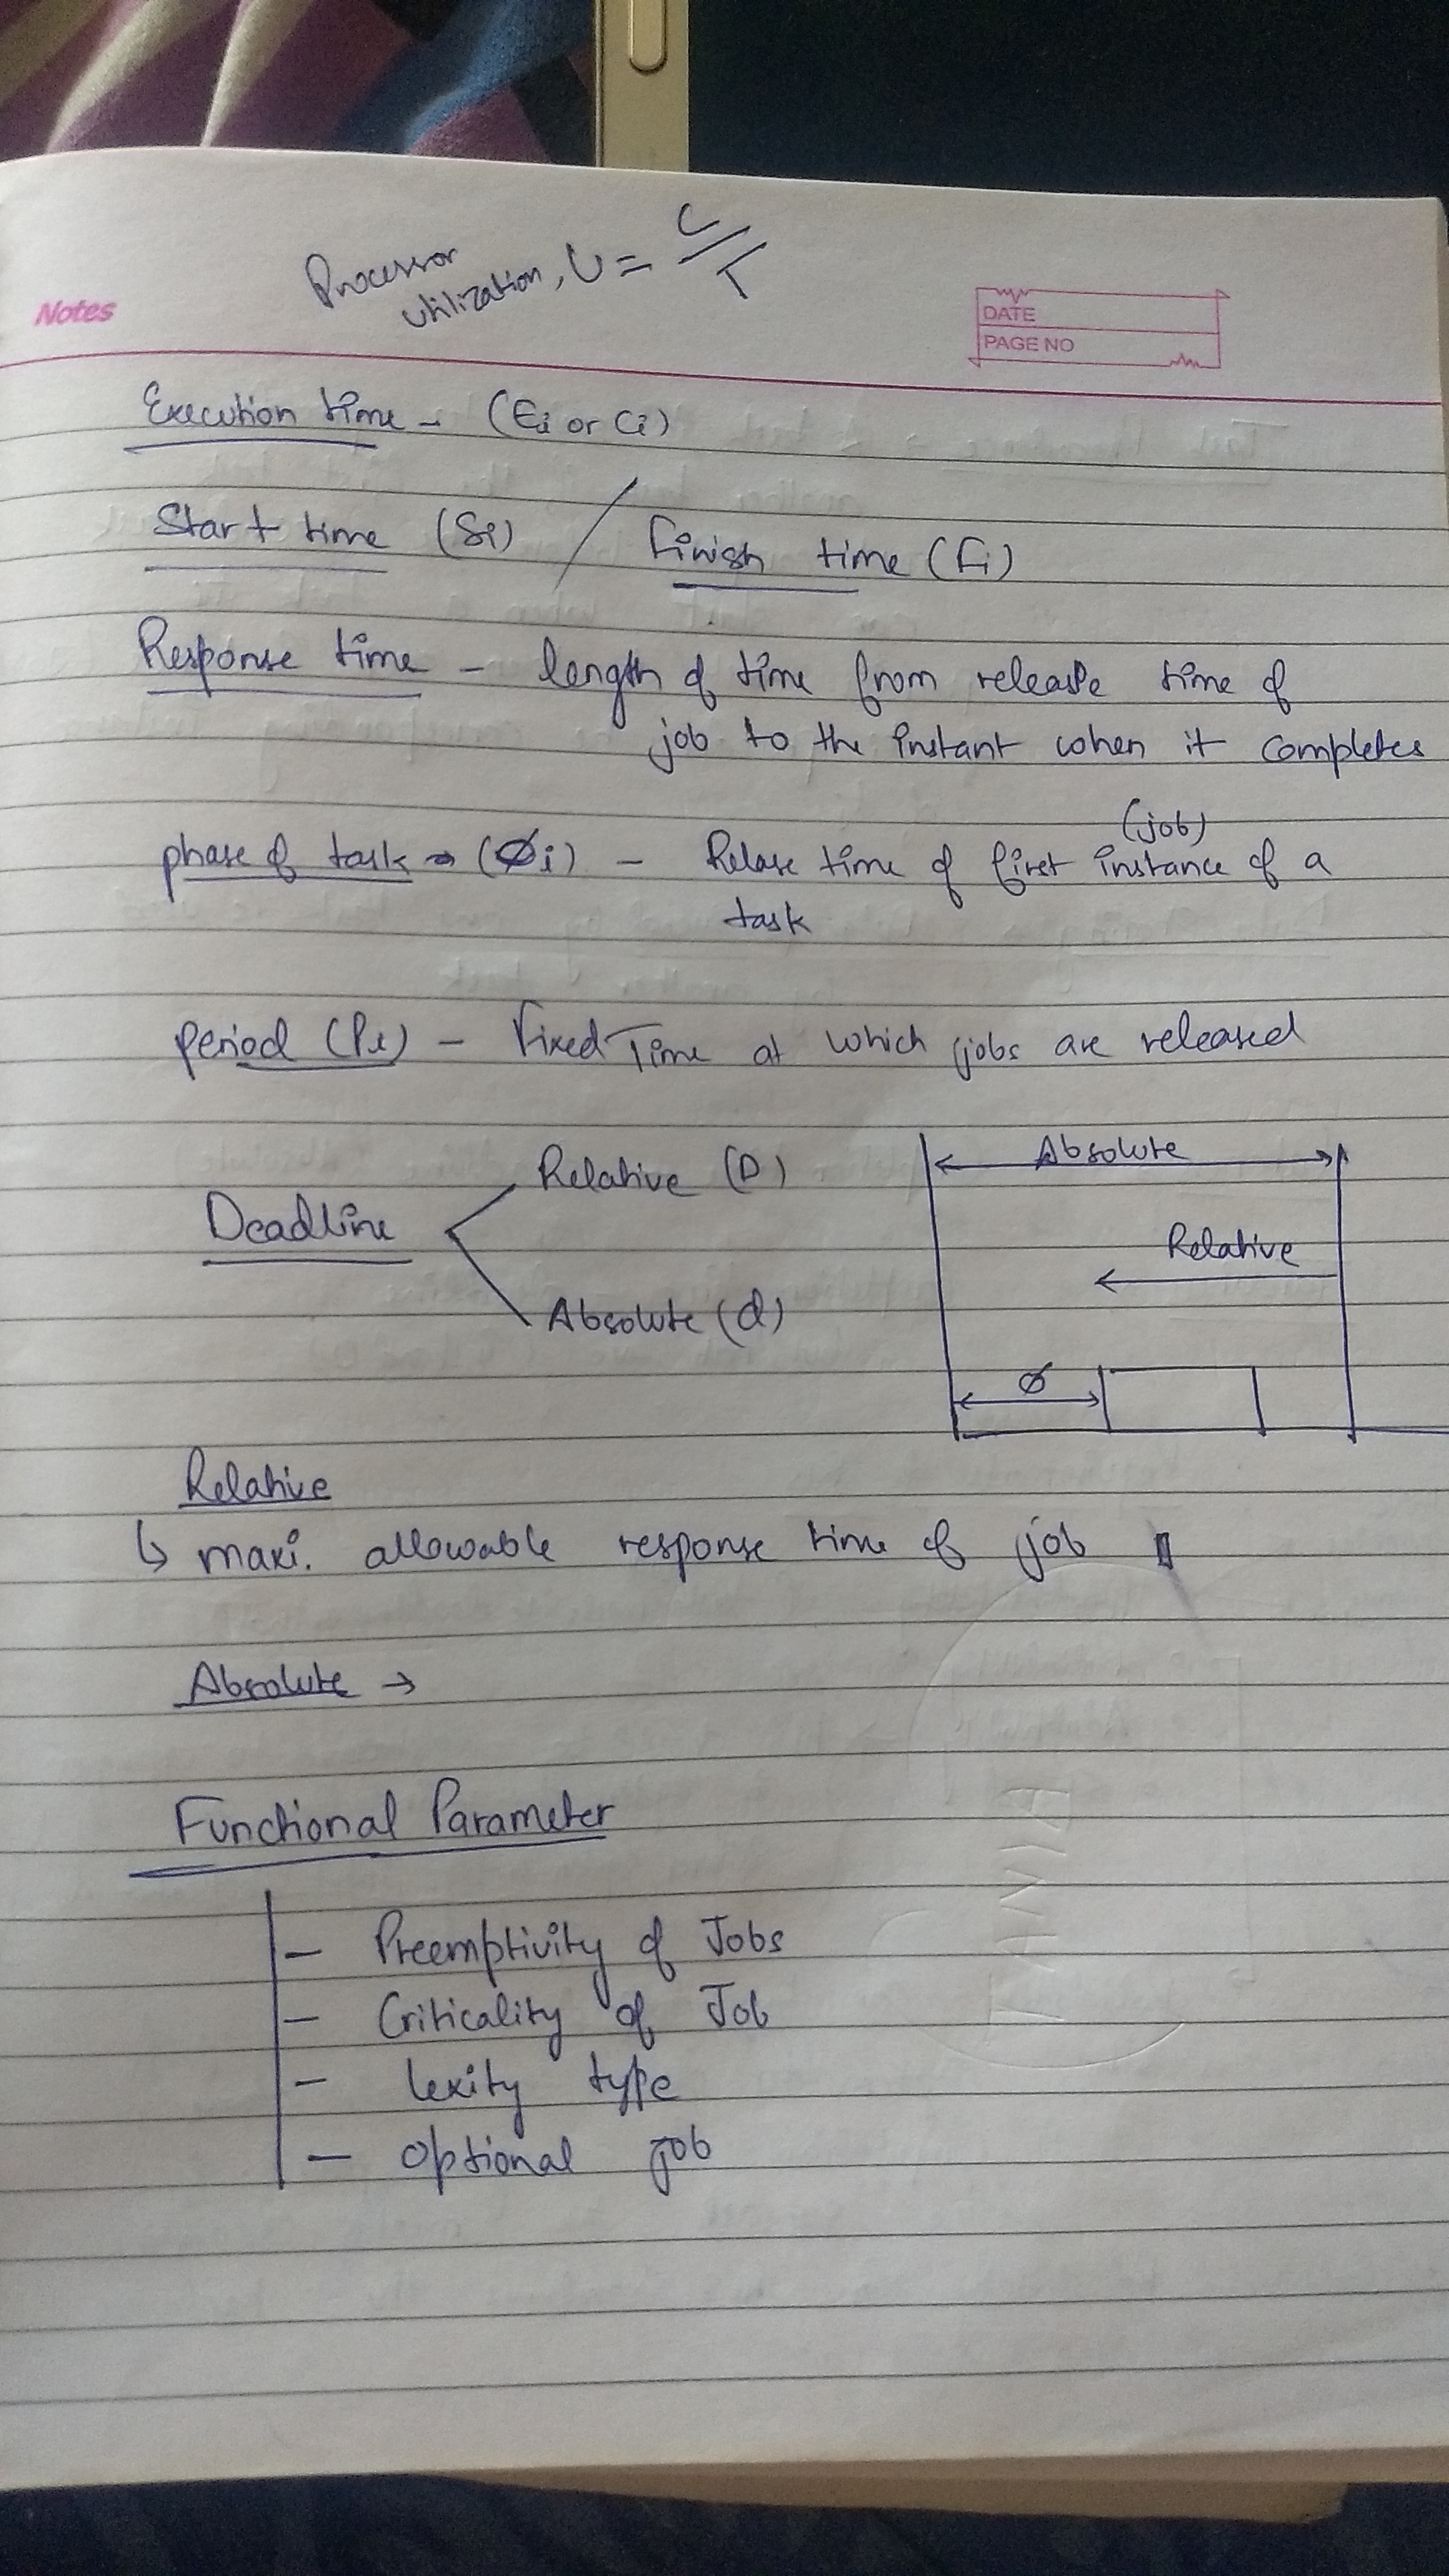 Processor
utilization, U = C/T
Notes
DATE
PAGE NO
Execution time - (Ei or Ci)
Start time (Si) / Finish time (Fi)
Response time - length of time from release time of
job to the instant when it completes
(job)
phase of task → (Øi) - Relase time of first instance of a
task
period (Pi) - Fixed Time at which jobs are released
Absolute
Relative (D)
Deadline
Relative
Absolute (d)
Ø
Relative
↳ maxi. allowable response time of job
Absolute →
Functional Parameter
- Preemptivity of Jobs
- Criticality of Job
- lexity type
- optional job